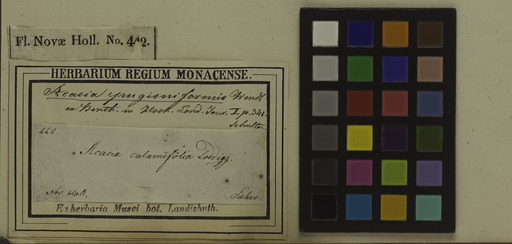 Fl. Novæ Holl. No. 442.
HERBARIUM REGIUM MONACENSE.
Acacia juniformis Wendl
ex Benth. in Hook. Lond. Jour. I. p. 341.
442.
Acacia calamifolia Loddigg.
Nov. Holl. Sieber.
Ex herbario Musei bot. Landishuth.